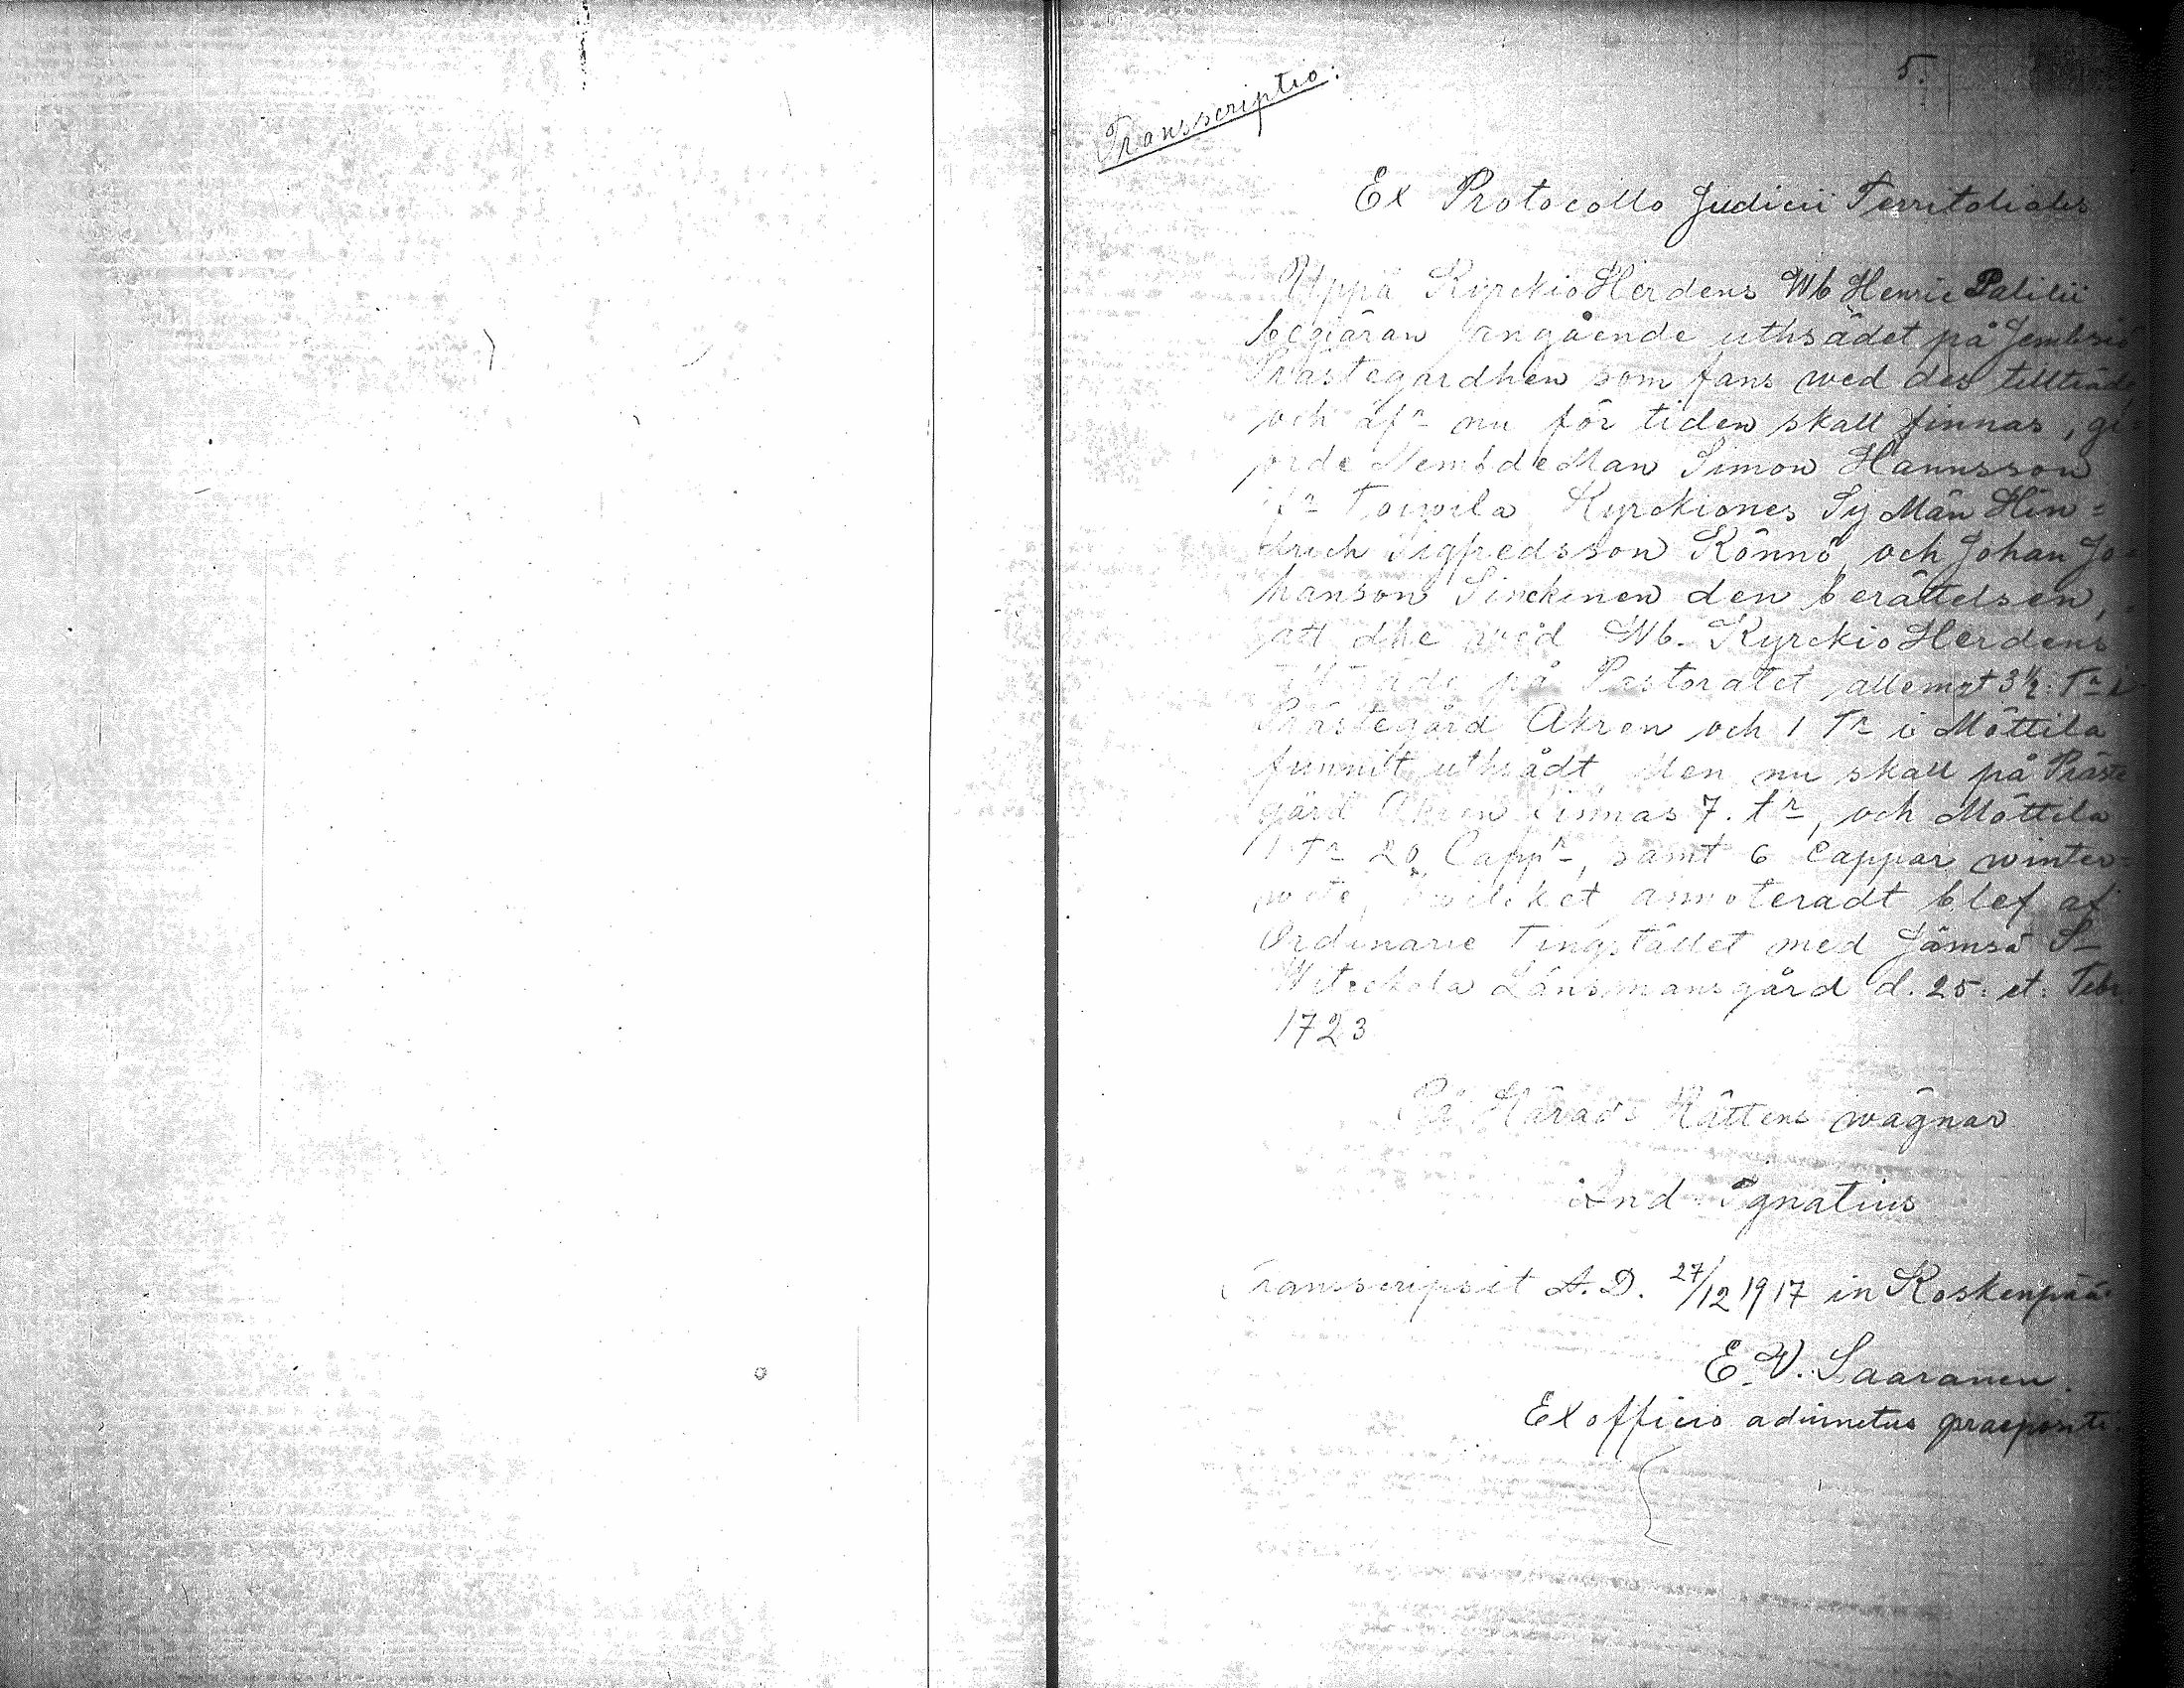 5.
Transscriptio:
Ex Protocollo Judicii Territoliales
Uppå KyrckioHerdens Wb Henric Palilii
begiäran angående uthsädet på Jembsiö
Prästegårdhen som fans wed des tillträde,
och äfn nu för tiden skall finnas, gi=
orde NembdeMan Simon Hannsson
ifn Toiwila Kyrckiones Sy Män Hin=
drich Sigfredsson Könnö, och Johan Jo=
hanson Sinckinen den berättelsen,
att dhe wed Wb. KyrckioHerdens
tillträde på Pastoratet allemst 3 1/2: Tnr i
Prästegård Åkren och 1 Tnr i Möttila
funnit uthsådt, Men nu skall på Präste
gård Åkren finnas 7. tnr, och Möttila
1 Tnr 20 Cappr, samt 6 Cappar winter=
wete, hwilcket annoteradt blef af
Ordinarie Tingstället med Jämsä S-
Witickala Länsmansgård d. 25: et: Febr
1723
På Härads Rättens wägnar
And Ignatius
Transcripsit A.D. 27/12 1917 in Koskenpää:
E. V. Saaranen.
Ex officio adiunctus praepositi.